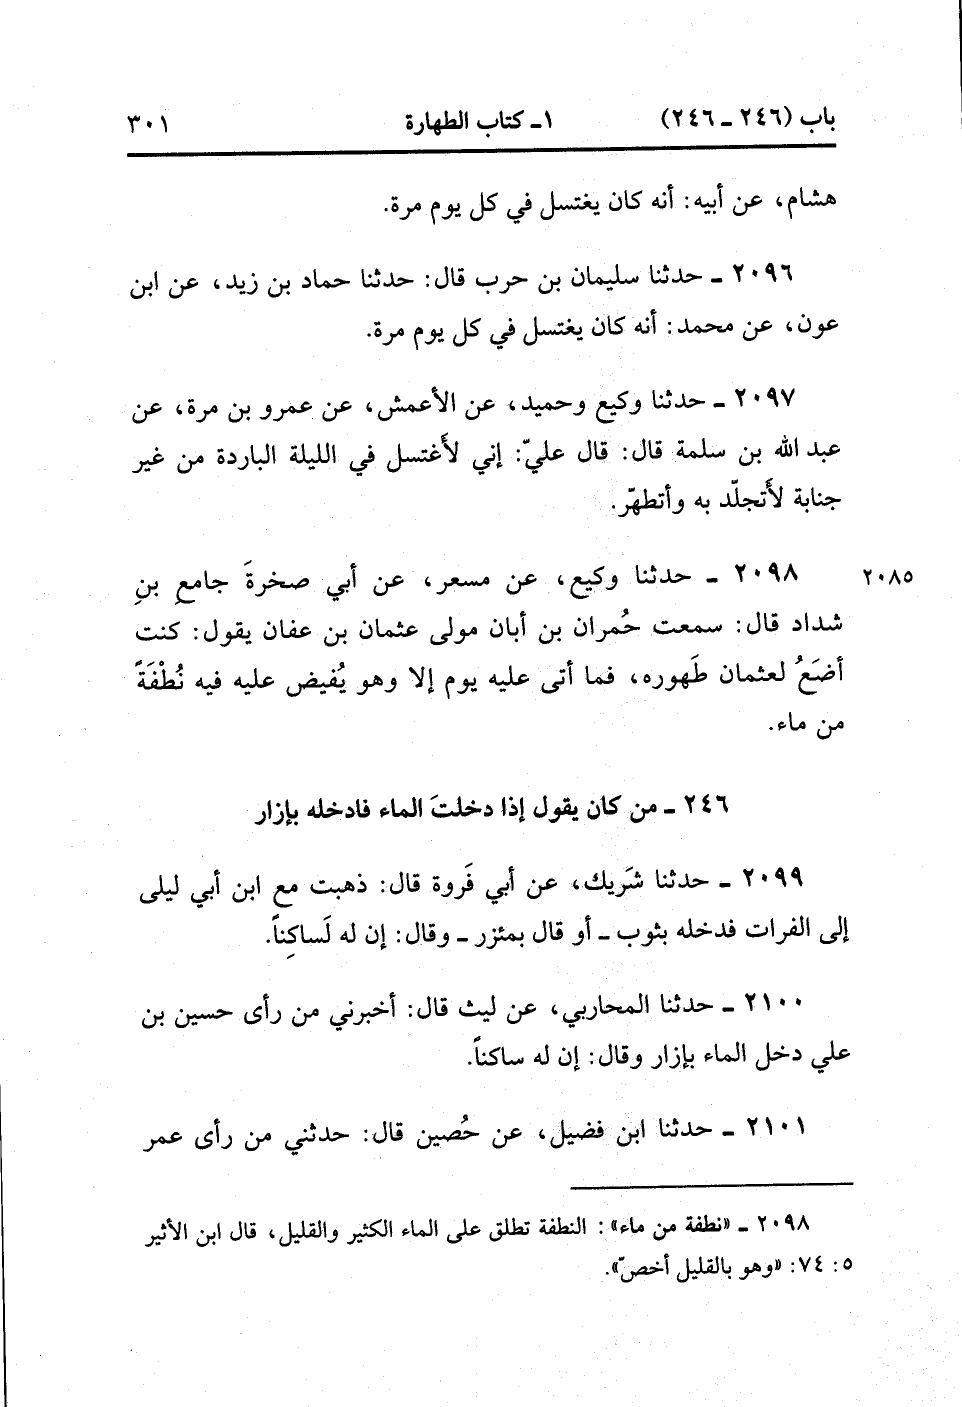 باب (٢٤٦ ـ ٢٤٦) ١ـ كتاب الطهارة ٣٠١
هشام، عن أبيه: أنه كان يغتسل في كل يوم مرة.
٢٠٩٦ ـ حدثنا سليمان بن حرب قال: حدثنا حماد بن زيد، عن ابن
عون، عن محمد: أنه كان يغتسل في كل يوم مرة.
٢٠٩٧ ـ حدثنا وكيع وحميد، عن الأعمش، عن عمرو بن مرة، عن
عبد الله بن سلمة قال: قال عليّ: إني لأَغتسل في الليلة الباردة من غير
جنابة لأَتجلّد به وأتطهّر.
٢٠٩٨ ـ حدثنا وكيع، عن مسعر، عن أبي صخرةَ جامعِ بنِ ٢٠٨٥
شداد قال: سمعت حُمران بن أبان مولى عثمان بن عفان يقول: كنت
أضَعُ لعثمان طَهوره، فما أتى عليه يوم إلا وهو يُفيض عليه فيه نُطْفَةً
من ماء.
٢٤٦ ـ من كان يقول إذا دخلتَ الماء فادخله بإزار
٢٠٩٩ ـ حدثنا شَريك، عن أبي فَروة قال: ذهبت مع ابن أبي ليلى
إلى الفرات فدخله بثوب ـ أو قال بمئزر ـ وقال: إن له لَساكِناً.
٢١٠٠ ـ حدثنا المحاربي، عن ليث قال: أخبرني من رأى حسين بن
علي دخل الماء بإزار وقال: إن له ساكناً.
٢١٠١ ـ حدثنا ابن فضيل، عن حُصين قال: حدثني من رأى عمر
٢٠٩٨ ـ «نطفة من ماء»: النطفة تطلق على الماء الكثير والقليل، قال ابن الأثير
٥: ٧٤: «وهو بالقليل أخصّ».